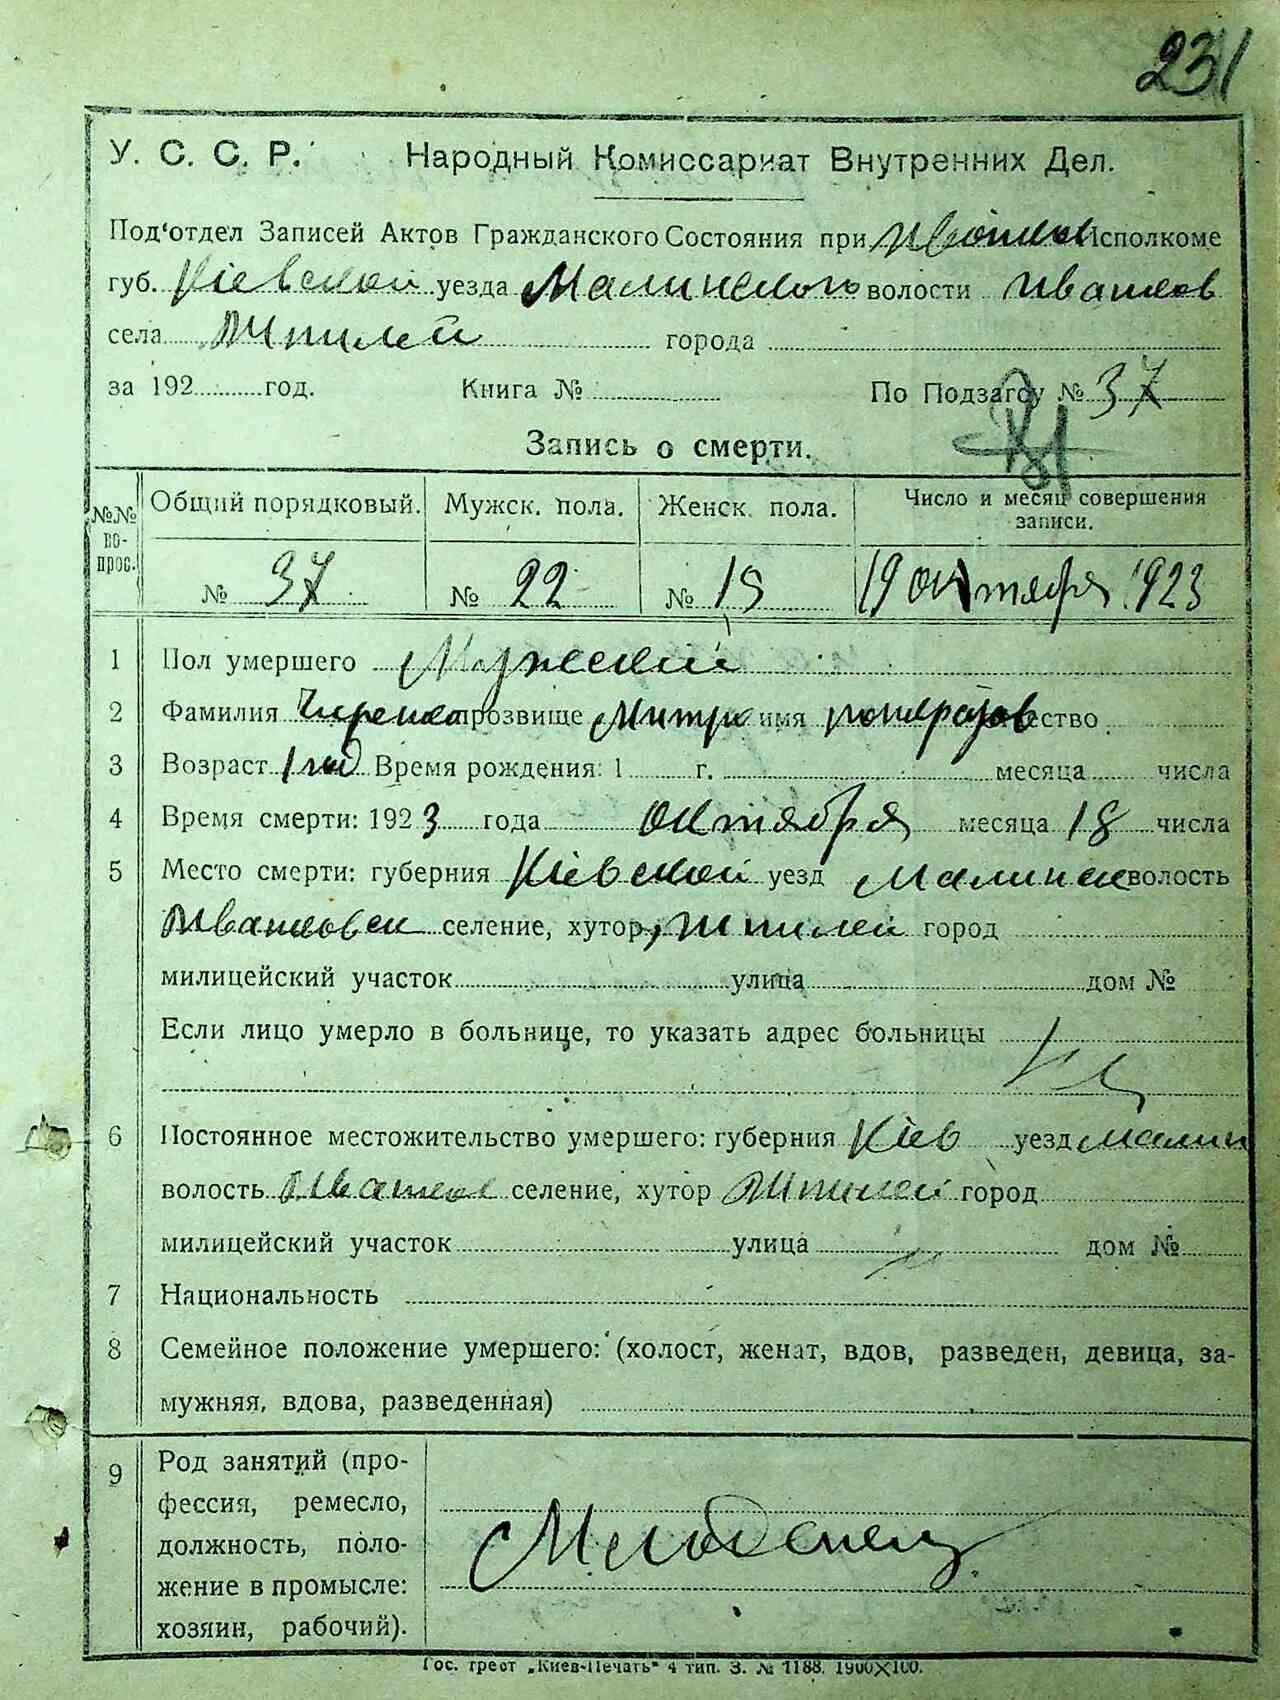 231
У. С. С. Р. Народный Комиссариат Внутренних Дел.
Под'отдел Записей Актов Гражданского Состояния при Исполкоме
губ. Кіевской уезда Малинского волости Ивашков
села Шпилей города
за 192 год. Книга № По Подзагсу № 37
Запись о смерти.
№№ вопрос. Общий порядковый. Мужск. пола. Женск. пола. Число и месяц совершения записи.
№ 37 № 22 № 15 19 октября 1923
1 Пол умершего Мужской
2 Фамилия прозвище Митро имя отчество
3 Возраст 1 год Время рождения: 1 г. месяца числа
4 Время смерти: 1923 года октября месяца 18 числа
5 Место смерти: губерния Кіевской уезд Малинск волость
Ивашковск селение, хутор, Шпилей город
милицейский участок улица дом №
Если лицо умерло в больнице, то указать адрес больницы
6 Постоянное местожительство умершего: губерния Кіев уезд Малин
волость Ивашков селение, хутор Шпилей город
милицейский участок улица дом №
7 Национальность
8 Семейное положение умершего: (холост, женат, вдов, разведен, девица, за-
мужняя, вдова, разведенная)
9 Род занятий (про-
фессия, ремесло,
должность, поло-
жение в промысле:
хозяин, рабочий).
Младенец
Гос. трест „Киев-Печать" 4 тип. З. № 1188. 1900×100.